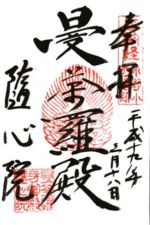 奉拝
平成十九年
三月十八日
曼荼羅殿
隨心院